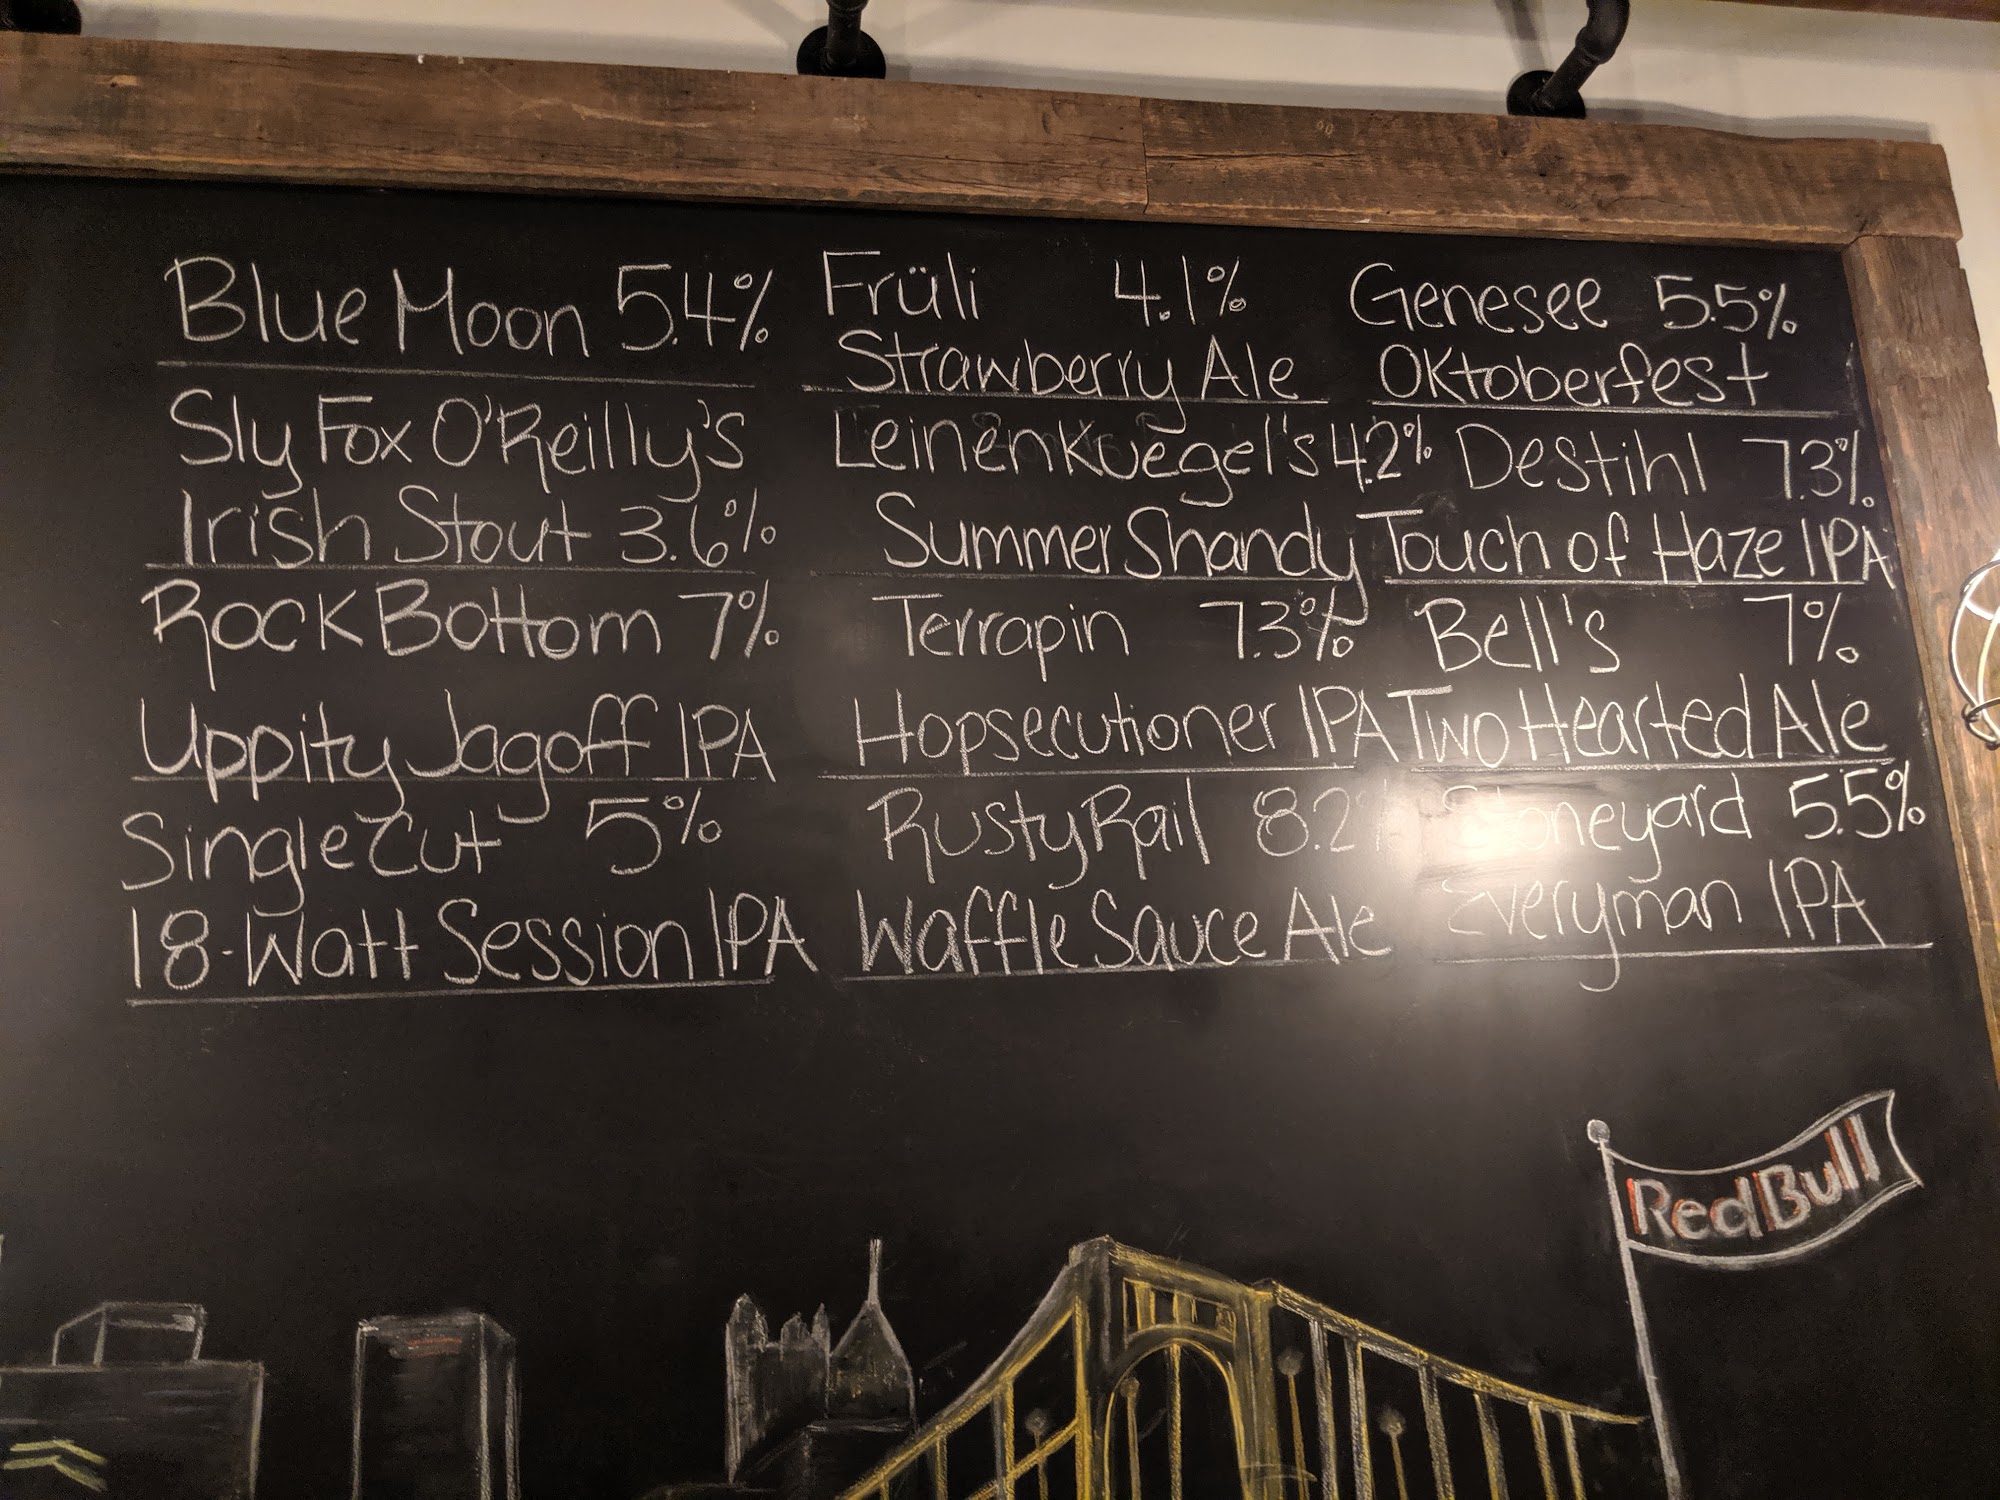 Blue Moon 5.4%
Sly Fox O'Reilly's
Irish Stout 3.6%
Rock Bottom 7%
Uppity Jagoff IPA
SingleCut 5%
18-Watt Session IPA
Früli 4.1%
Strawberry Ale
Leinenkuegel's 4.2%
Summer Shandy
Terrapin 7.3%
Hopsecutioner IPA
Rusty Rail 8.2%
Waffle Sauce Ale
Genesee 5.5%
Oktoberfest
Destihl 7.3%
Touch of Haze IPA
Bell's 7%
Two Hearted Ale
Stoneyard 5.5%
Everyman IPA
Red Bull